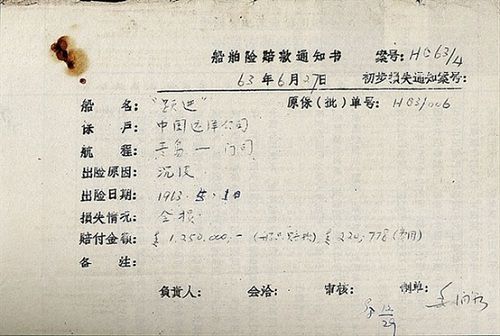 船舶险赔款通知书 案号: HC63/4
63年6月27日 初步损失通知案号:
船名: "跃进" 原保(批)单号: HC3/006
保户: 中国远洋公司
航程: 青岛—门司
出险原因: 沉没
出险日期: 1963.5.1日
损失情况: 全损
赔付金额: £1,250,000,- (船只赔款) £220,778 (费用)
备注:
负责人: 会洽: 审核: 制班:
12/29